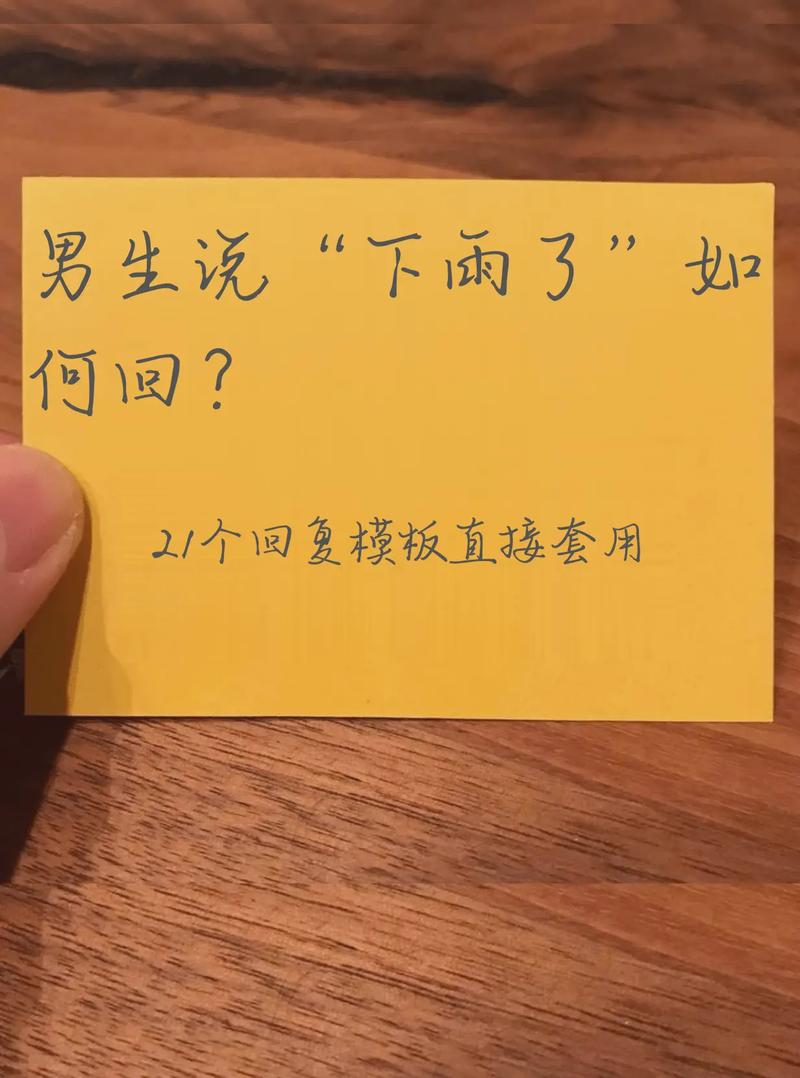 男生说“下雨了”如
何回？
21个回复模板直接套用